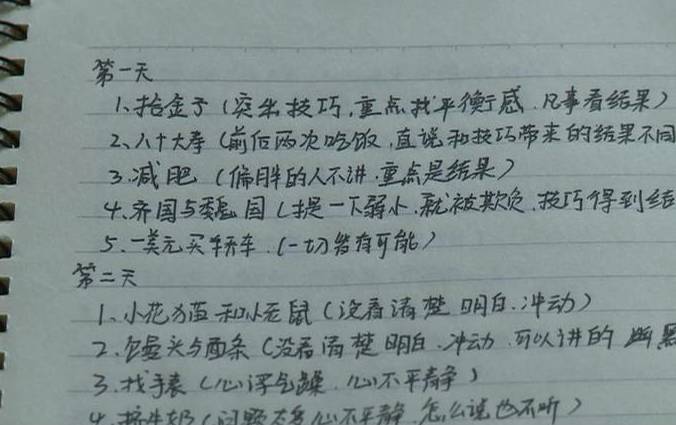 第一天
1、抬金子(突出技巧,重点找平衡感.凡事看结果)
2、八十大寿(前后两次吃饭,直说和技巧带来的结果不同
3、减肥(偏胖的人不讲.重点是结果)
4、齐国与魏国(提一下弱小.就被欺负.技巧得到结
5、一美元买轿车.(一切皆有可能)
第二天
1、小花猫和小老鼠(没看清楚 明白.冲动)
2、馒头与面条(没看清楚 明白.冲动.可以讲的 幽
3、找手表(心浮气躁.心不平静)
4、挤牛奶(问题太多心不平静.怎么说也不听)